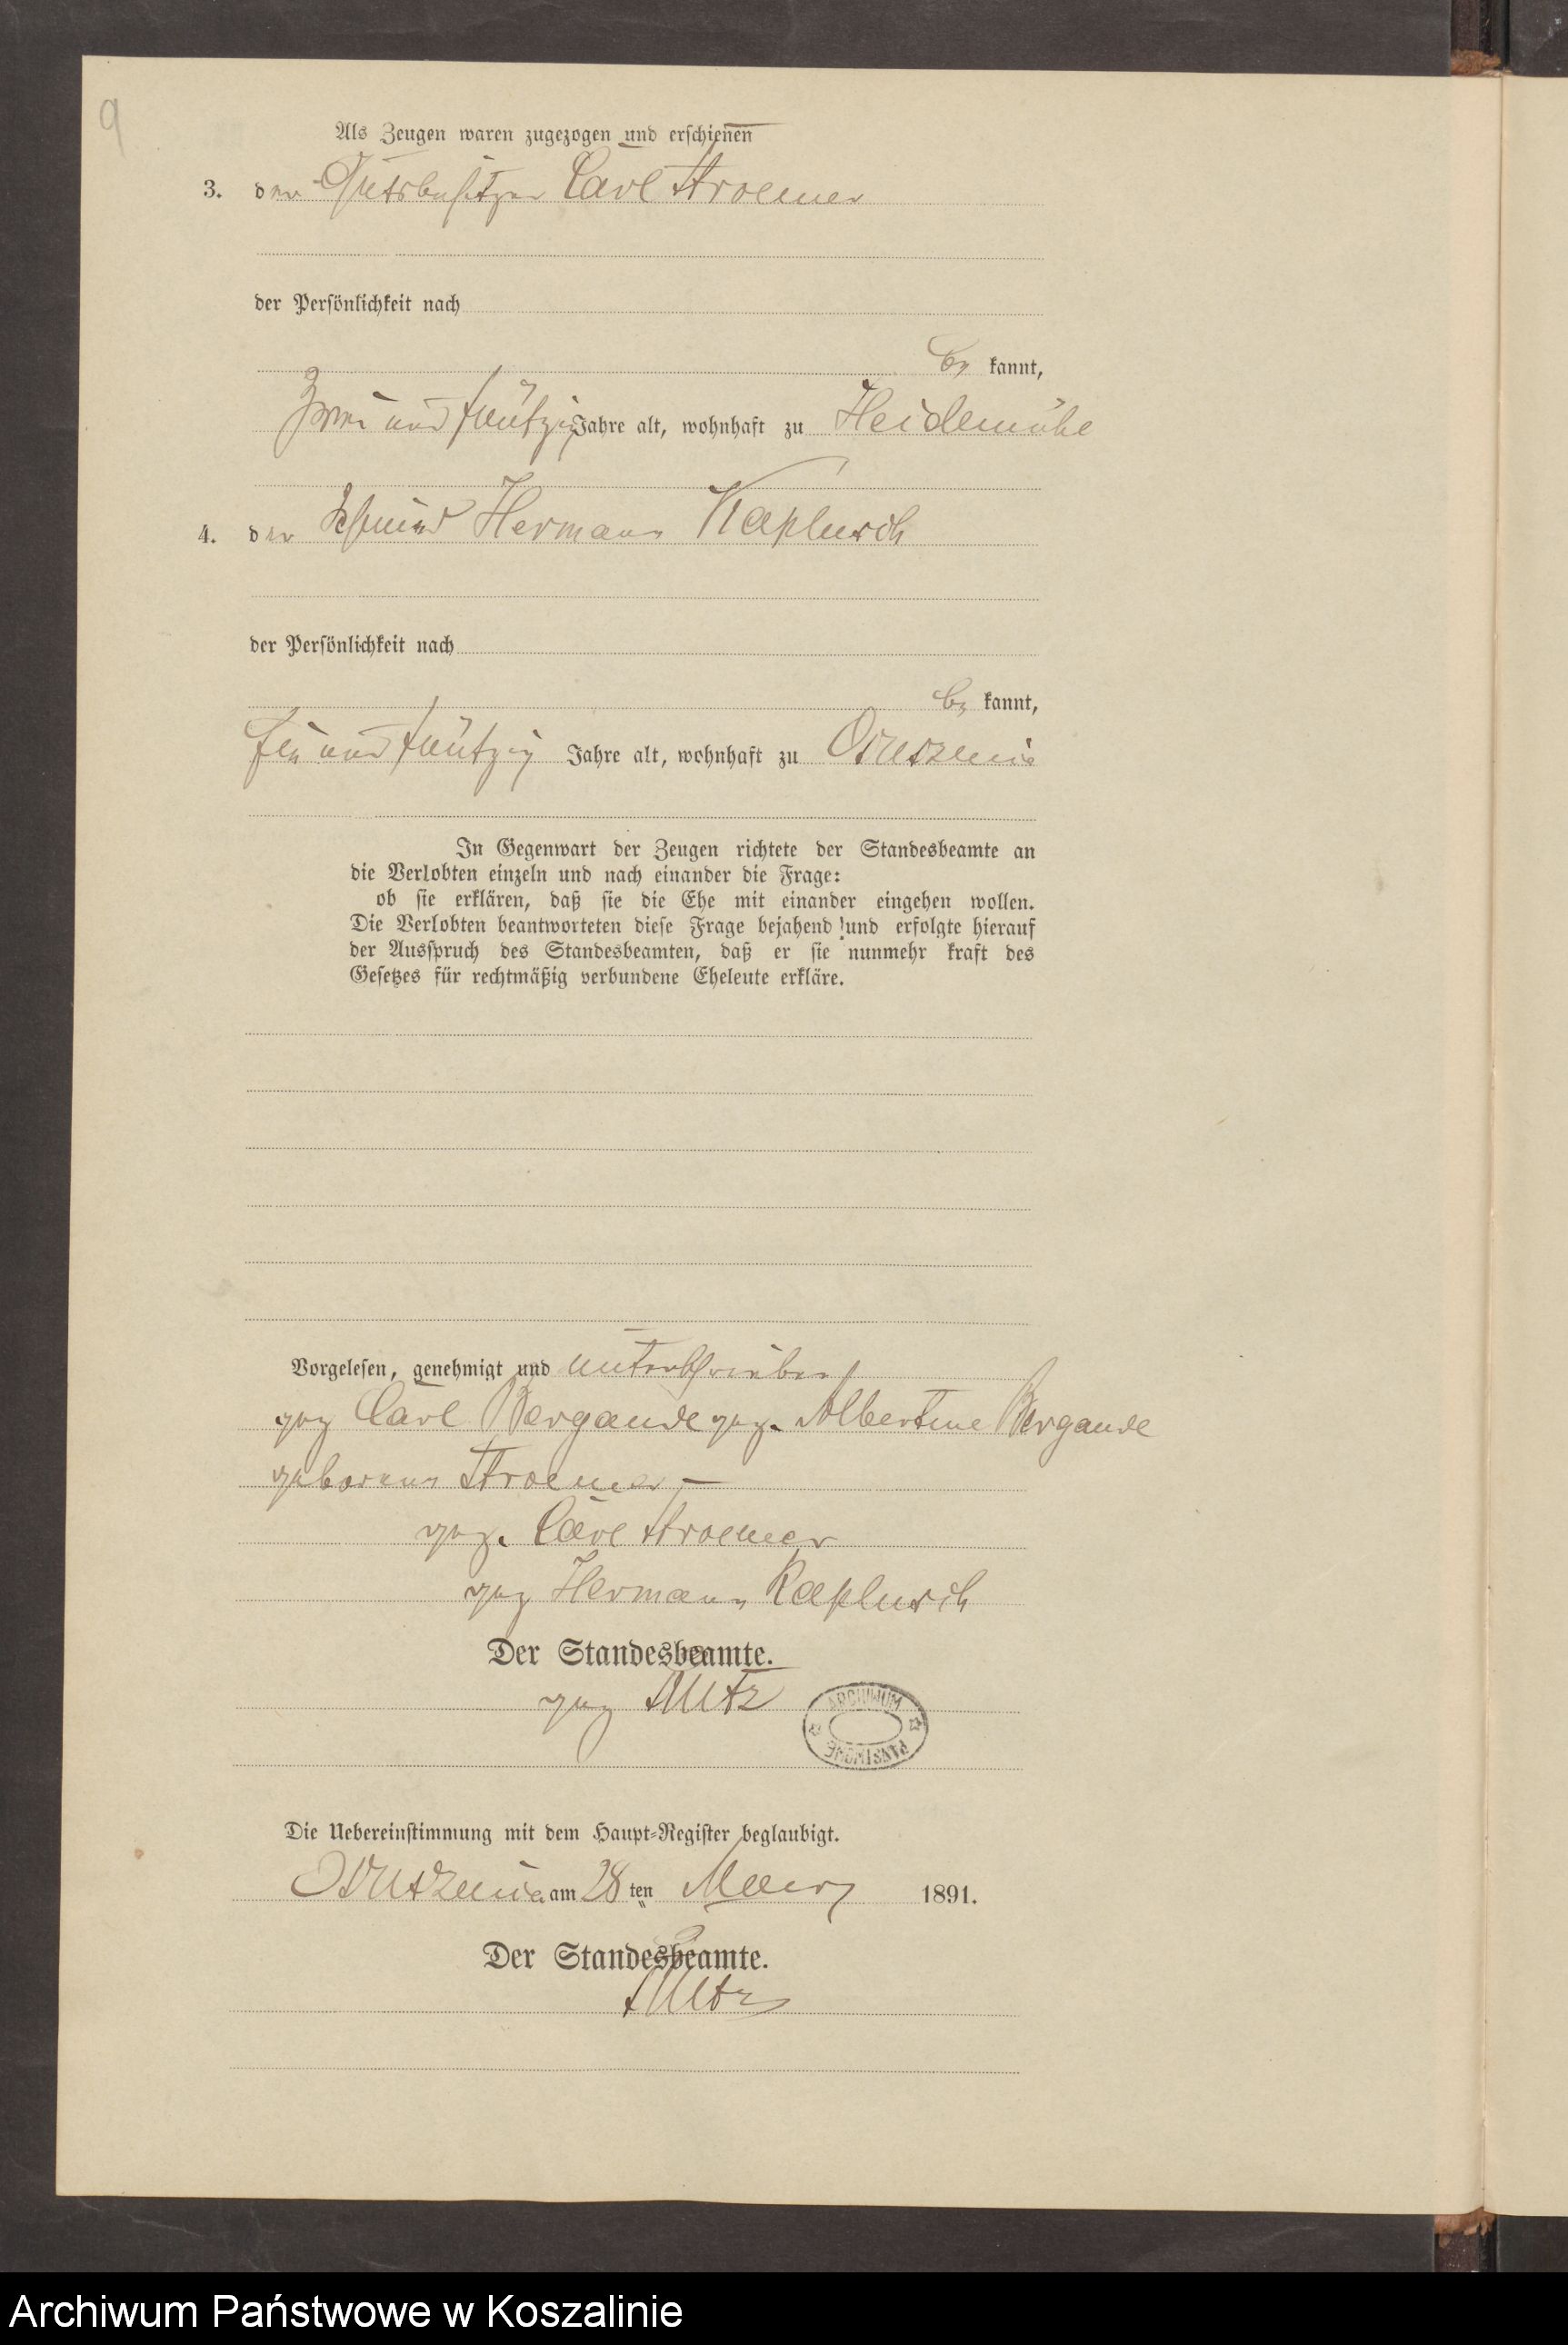 9
Als Zeugen waren zugezogen und erschienen
3. der Gutsbesitzer Carl Stroemer
der Persönlichkeit nach
be kannt,
zwei und fünfzig Jahre alt, wohnhaft zu Heidemühle
4. der Schmied Hermann Kaplusch
der Persönlichkeit nach
be kannt,
und Jahre alt, wohnhaft zu
In Gegenwart der Zeugen richtete der Standesbeamte an
die Verlobten einzeln und nach einander die Frage:
ob sie erklären, daß sie die Ehe mit einander eingehen wollen.
Die Verlobten beantworteten diese Frage bejahend und erfolgte hierauf
der Ausspruch des Standesbeamten, daß er sie nunmehr kraft des
Gesetzes für rechtmäßig verbundene Eheleute erkläre.
Vorgelesen, genehmigt und unterschrieben
gez Carl Bergande gez. Albertine Bergande
geborene Stroemer –
gez. Carl Stroemer
gez Hermann Kaplusch
Der Standesbeamte.
gez
ARCHIWUM PAŃSTWOWE
Die Uebereinstimmung mit dem Haupt-Register beglaubigt.
am 28 ten Maerz 1891.
Der Standesbeamte.
Archiwum Państwowe w Koszalinie